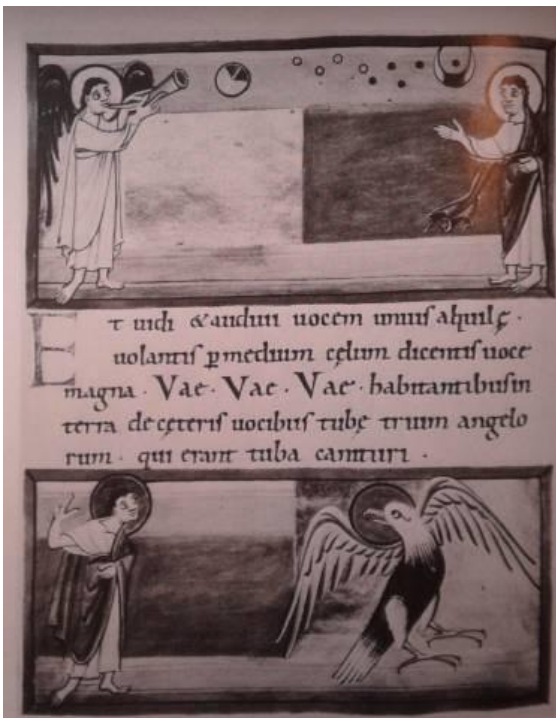 Et uidi & audiui uocem unius aquilę ·
uolantis p̲ medium cęlum dicentis uoce
magna · Vae · Vae · Vae · habitantibus in
terra de cęteris uocibus tubę trium angelo
rum · qui erant tuba canituri ·